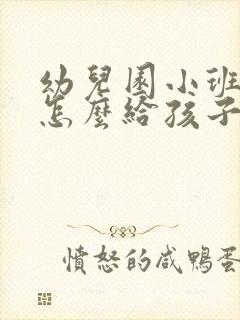 幼兒園小班
怎麼給孩子
憤怒的咸鴨蛋